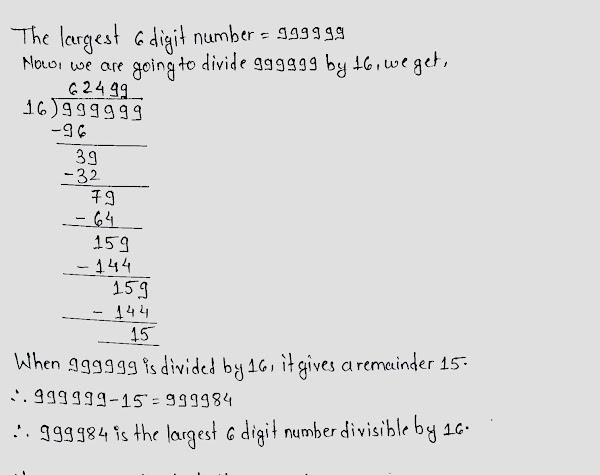 The largest 6 digit number = 999999
Now, we are going to divide 999999 by 16, we get,
62499
16)999999
-96
39
-32
79
- 64
159
- 144
159
- 144
15
When 999999 is divided by 16, it gives a remainder 15.
∴ 999999-15 = 999984
∴ 999984 is the largest 6 digit number divisible by 16.